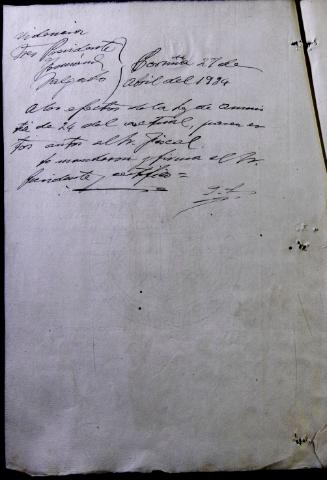 Sres Presidente
Salgado
Coruña 27 de
Abril del 1934
A los efectos de la ley de amnis
tia de 24 del actual, pasen es
tos autos al Sr. Fiscal.
Lo mandaron y firma el Sr.
Presidente y certifico =